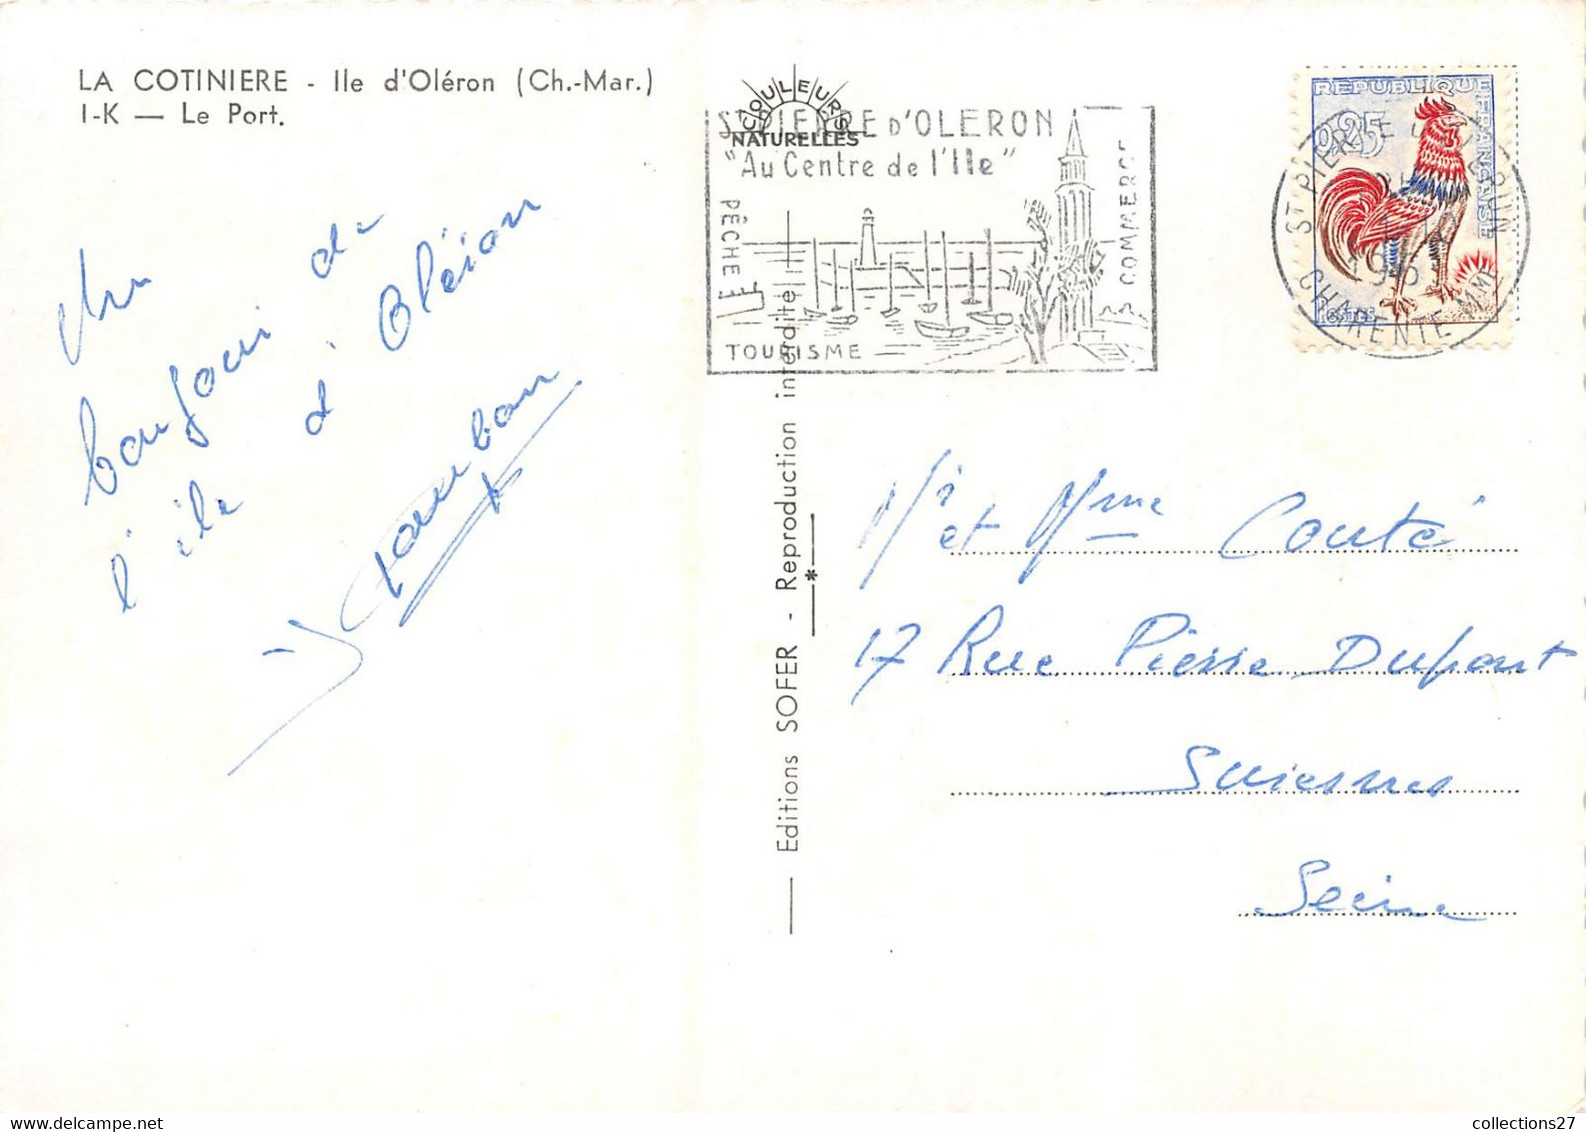 LA COTINIERE - Ile d'Oléron (Ch.-Mar.)
I-K — Le Port.
Un
bonjour de
l'île d'Oléron
COULEURS
NATURELLES
ST PIERRE D'OLERON
"Au Centre de l'Ile"
PÊCHE
TOURISME
COMMERCE
REPUBLIQUE
FRANCAISE
0,25
POSTES
ST PIERRE D'OLERON
CHARENTE MME
Editions SOFER - Reproduction interdite
Mr et Mme Conté
17 Rue Pierre Dupont
Suresnes
Seine
collections27